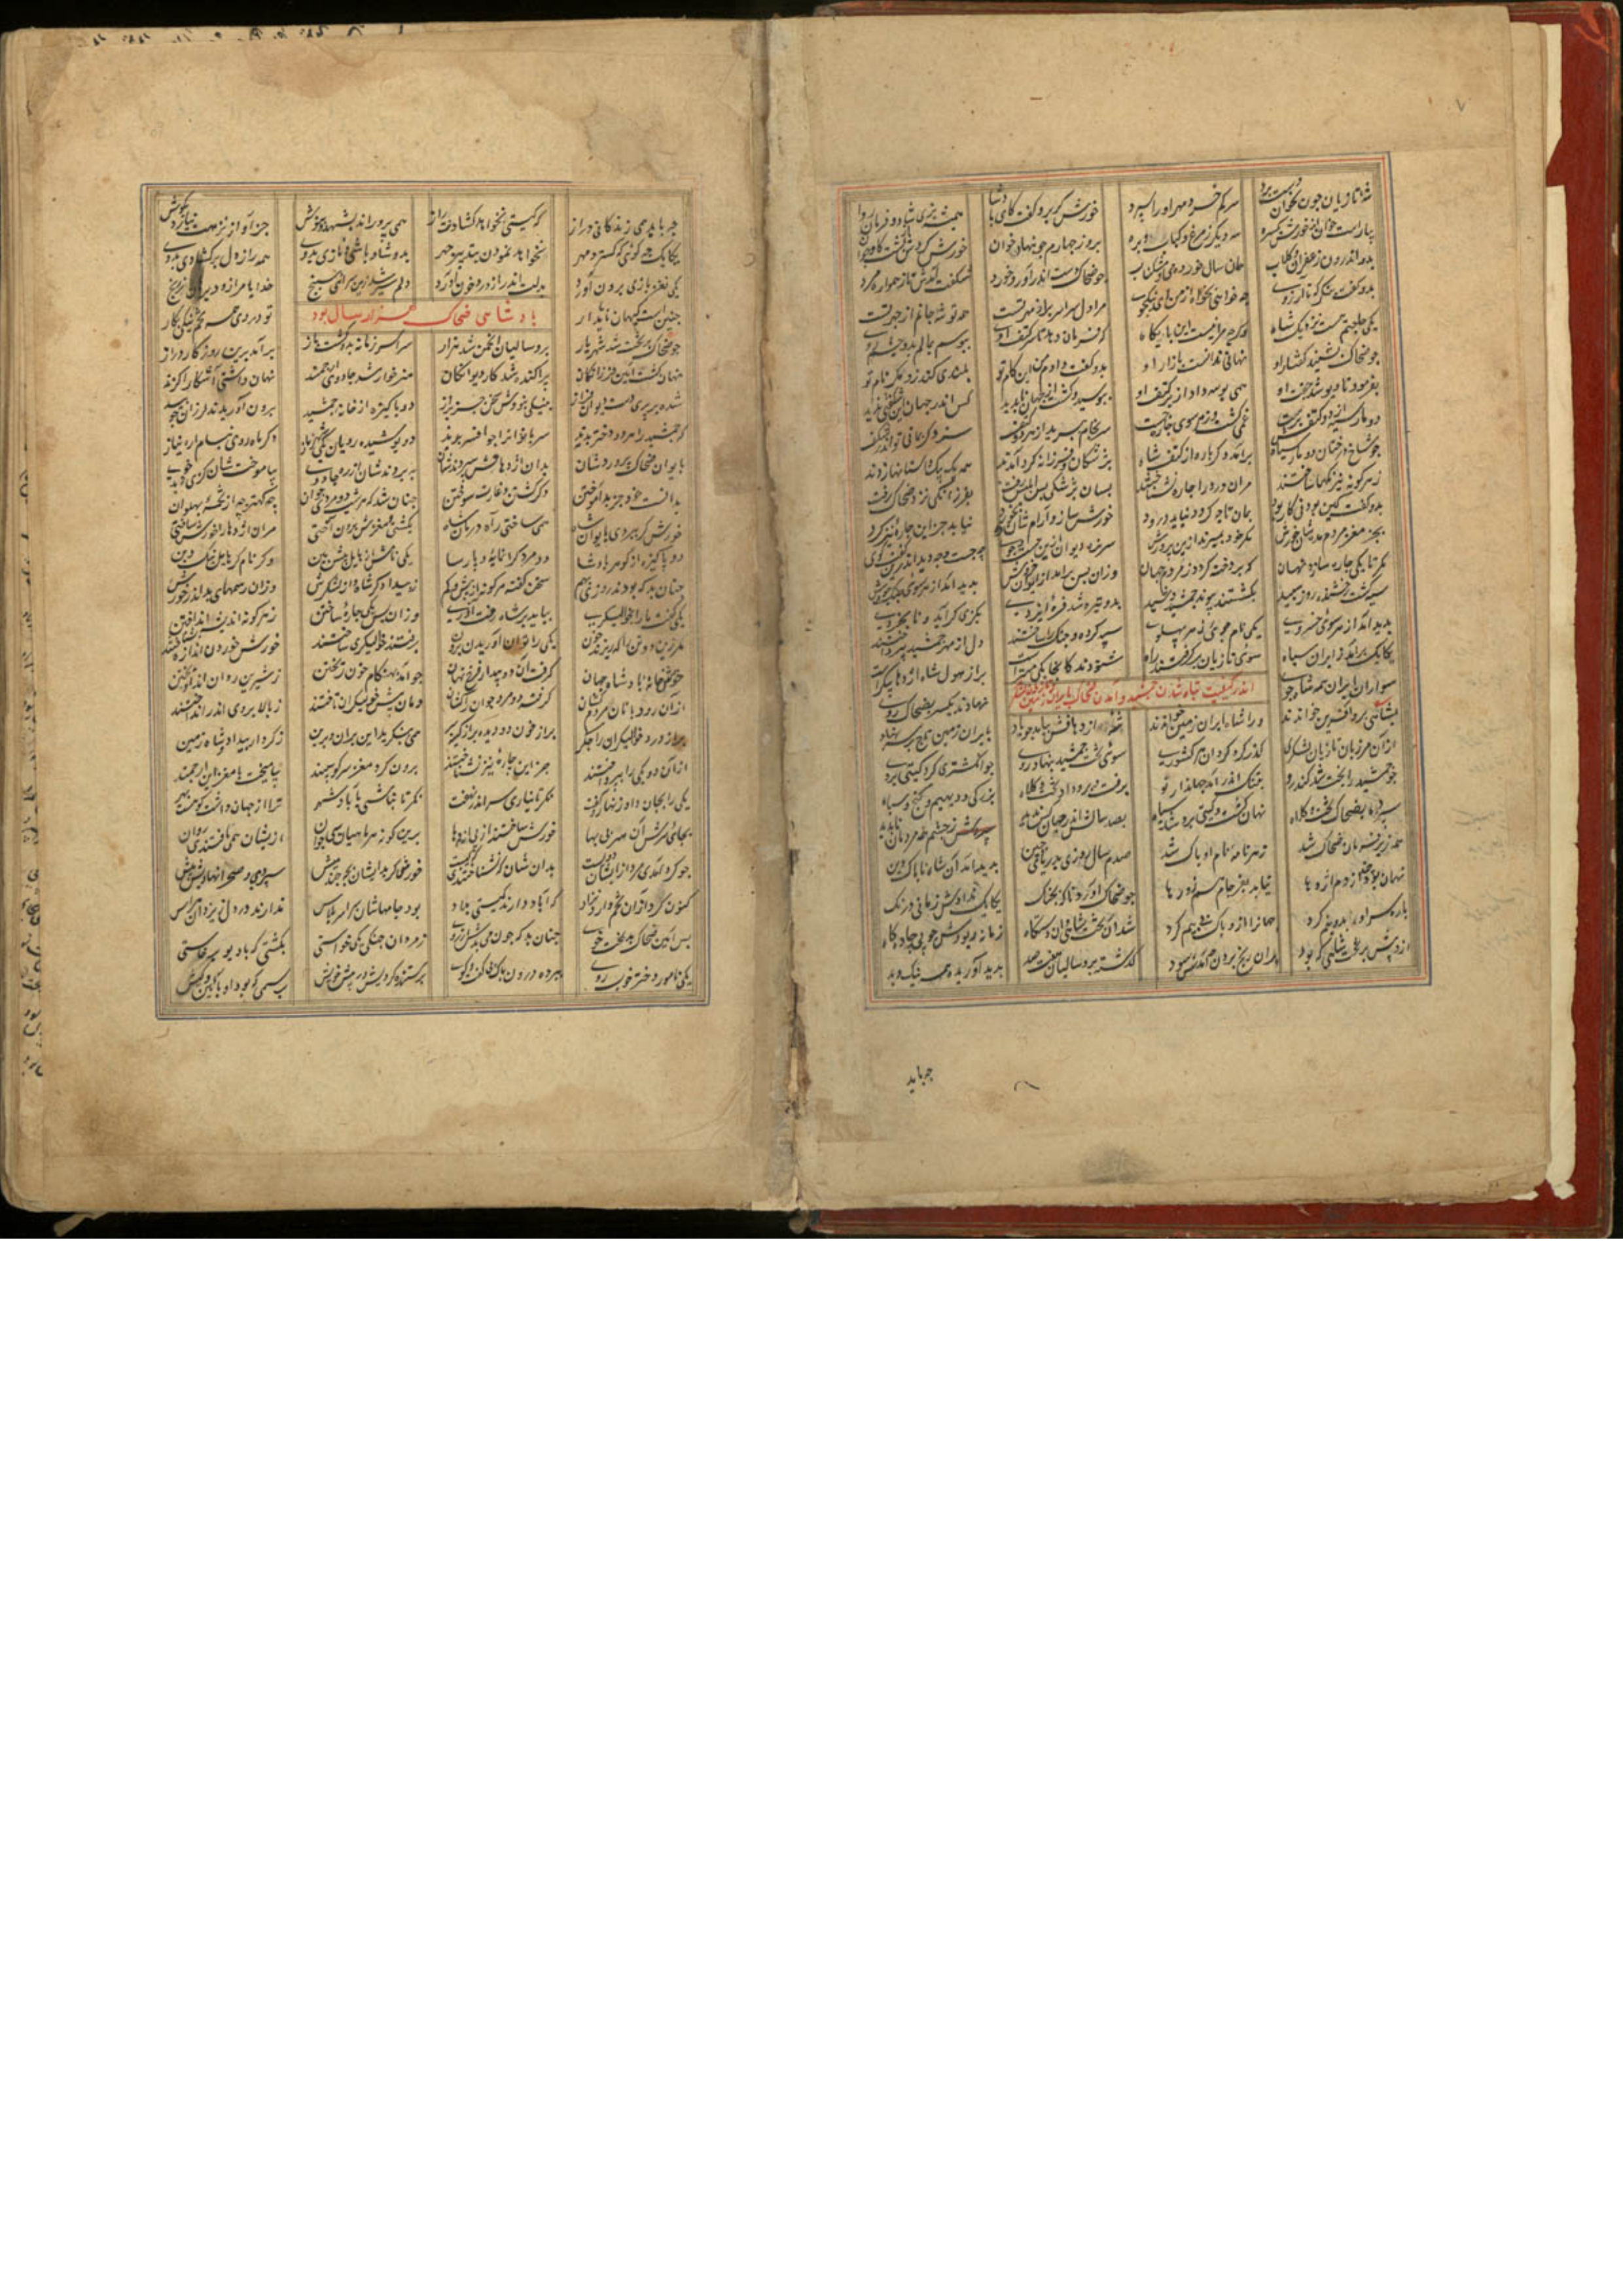 ۷
شه تازیان چون بخوان دست برد سر کم خرد مهر او را سپرد خورش کر برو کفت کای پادشا همیشه بزی شاد و فرمان روا
بیاراست خوان از خورش یکسره سه دیکر ز مرغ و کباب و بره بروز چهارم چو بنهاد خوان خورش کرد کاو جوان
بدو اندرون زعفران و کلاب همان سال خورده می و مشک ناب چو ضحاک دست اندر آورد و خورد شکفت آمدش زان مرد
بدو کفت بنکر که تا آرزوی چه خواهی بخواه از من ای نیکخوی مرا دل سراسر پر از مهر تست همه توشه جانم از چهر تست
یکی حاجتستم بنزدیک شاه وکرچه مرا نیست این پایکاه که فرمان دهد تا کتف اوی ببوسم بمالم برو چشم و روی
چو ضحاک بشنید کفتار او نهانی ندانست بازار او بدو کفت دادم من این کام تو بلندی مکر نام تو
بفرمود تا دیو چون جفت او همی بوسه داد از بر کتف او ببوسید و کشت از جهان ناپدید کس اندر جهان این شکفتی ندید
دو مار سیه از دو کتفش برست غمی کشت و از هر سوی چاره جست سرانجام ببرید از هر دو کتف سزد کر بمانی تو اندر شکفت
چو شاخ درختان دو مار سیاه برآمد دکر باره از کتف شاه پزشکان فرزانه کرد آمدند همه یک بیک داستانها زدند
ز هر کونه نیرنکها ساختند مران درد را چاره نشناختند بسان پزشکی پس ابلیس تفت بفرزانکی نزد ضحاک رفت
بدو کفت کین بودنی کار بود بمان تا چه کردد نباید درود خورش ساز و آرام شان ده بخورد نیاید جز این چاره نیز کرد
بجز مغز مردم مده شان خورش مکر خود بمیرند ازین پرورش سر نره دیوان ازین جست و جوی چه جست و چه دید اندرین کفت و کوی
مکر تا یکی چاره سازد نهان که پردخته کردد ز مردم جهان وزان پس برآمد از ایران خروش پدید آمد از هر سوی جنک و جوش
سیه کشت رخشنده روز سپید کسستند پیوند جمشید برو تیره شد فره ایزدی بکژی کرایید و نابخردی
پدید آمد از هر سوی خسروی یکی نام جوی ز هر پهلوی سپه کرده و جنک را ساخته دل از مهر جمشید پرداخته
یکایک برآمد از ایران سپاه سوی تازیان برکرفتند راه شنودند کانجا یکی مهترست پر از هول شاه اژدها پیکرست
سواران ایران همه شاه جوی نهادند یکسر بضحاک روی
اندر کیفیت تباه شدن جمشید و آمدن ضحاک بایران
بشاهی برو آفرین خواندند ورا شاه ایران زمین خواندند اژدهافش بیامد چو باد بایران زمین تاج بر سر نهاد
تازیان لشکری کرد کردان هر کشوری سوی تخت جمشید بنهاد روی چو انکشتری کرد کیتی بروی
چو جمشید را بخت شد کندرو بتنک اندر آمد جهاندار نو برفت و بدو داد تخت و کلاه بزرکی و دیهیم و کنج و سپاه
سپرده بضحاک تخت و کلاه نهان کشت و کیتی برو شد سیاه بصد سالش اندر جهان کس ندید ز چشم همه مردمان ناپدید
همه زیر فرمان ضحاک شد ز هر نامه نام او پاک شد صدم سال روزی بدریای چین پدید آمد آن شاه ناپاک دین
نهان بود چند از دم اژدها نیامد بفرجام هم زو رها چو ضحاک آورد ناکه بچنک یکایک ندادش زمانی درنک
باره سراسر بدو نیم کرد جهانرا ازو پاک بی بیم کرد شد آن تخت شاهی و آن دستکاه زمانه ربودش چو بیجاده کاه
ازو بیش بر تخت شاهی که بود بران رنج بردن چه آمدش سود کذشته برو سالیان هفت صد پدید آوریده همه نیک و بد
چه باید
چه باید همی زندکانی دراز که کیتی نخواهد کشادنت راز همی پروراندت با شهد و نوش جز آواز نرمت نیاید بکوش
یکایک چو کوئی که کسترد مهر نخواهد نمودن بتو نیز چهر بدو شاد باشی و نازی بدوی همه راز دل برکشادی بدوی
یکی نغز بازی برون آورد بدلت اندر از درد خون آورد دلم سیر شد زین سرای سپنج خدایا مرا زود برهان ز رنج
چنین است کیهان ناپایدار تو در وی بجز تخم نیکی مکار
پادشاهی ضحاک هزار سال بود
چو ضحاک بر تخت شد شهریار برو سالیان انجمن شد هزار سراسر زمانه بدو کشت باز برآمد برین روزکار دراز
نهان کشت آئین فرزانکان پراکنده شد کار دیوانکان هنر خوار شد جادوی ارجمند نهان راستی آشکارا کزند
شده بر بدی دست دیوان دراز بنیکی نبودش سخن جز براز دو پاکیزه از خانه جمشید برون آوریدند لرزان چو بید
که جمشید را هر دو دختر بدند سر بانوانرا چو افسر بدند دو پوشیده رویان یکی شهرناز دکر ماه روی بنام ارنواز
بایوان ضحاک بردندشان بدان اژدهافش سپردندشان بپروردشان از ره جادوی بیاموختشان کژی و بدخوی
ندانست خود جز بد آموختن جز از کشتن و غارت و سوختن چنان شد که هر شب دو مرد جوان چه کهتر چه از تخمه پهلوان
خورش کر ببردی بایوان شاه همی ساختی راه درمان شاه بکشتی و مغزش برون آختی مران اژدها را خورش ساختی
دو پاکیزه از کوهر پادشا دو مرد کرانمایه و پارسا یکی نامش پیش بین دکر نام پاک دین
چنان بد که بودند روزی بهم سخن کفته هر کونه از بیش و کم ز بیدادکر شاه و از لشکرش وزان رسمهای بد اندر خورش
یکی کفت ما را بخوالیکری بباید بر شاه رفت آوری وزان پس یکی چاره ساختن ز هر کونه اندیشه انداختن
مکر زین دو تن را که ریزند خون یکی را توان آوریدن برون برفتند خوالیکری ساختند خورش خوردن اندازه بشناختند
خورش خانه پادشاه جهان کرفت آن دو بیدار فرخ نهان چو آمدش هنکام خون ریختن ز شیرین روان اندر آویختن
از آن روزبانان مردم کشان کرفته دو مرد جوان را کشان دمان پیش خوالیکران تاختند ز بالا بروی اندر انداختند
پر از درد خوالیکران را جکر پر از خون دو دیده پر از کینه سر همی بنکرید این بدان و برین ز کردار بیداد شاه زمین
از آن دو یکی را بپرداختند جز این چاره نیز نشناختند برون کرد مغز سر کوسپند بیامیخت با مغز آن ارجمند
یکی را بجان داد زنهار و کفت نکر تا بیاری سر اندر نهفت نکر تا نباشی بآباد شهر ترا از جهان دشت کوهست بهر
بجای سرش آن سر بی بها خورش ساختند از پی اژدها برین کونه هر ماهیان سی جوان ازیشان همی یافتندی روان
چو کرد آمدی مرد ازیشان دویست بدان شان که نشناختندی که کیست خورش کر بدیشان بز چند میش سپردی و صحرا نهادیش پیش
کنون کرد از آن تخم دارد نژاد بود جامهاشان سراسر پلاس ندارند در دل ز یزدان هراس
پس آئین ضحاک خوی چنان بد که چون می بدش آرزوی ز مردان جنکی یکی خواستی بکشتی که با دیو برخاستی
یکی نامور دختر خوب روی بپرده درون پاک بی کفت و کوی پرستنده کردیش در پیش خویش